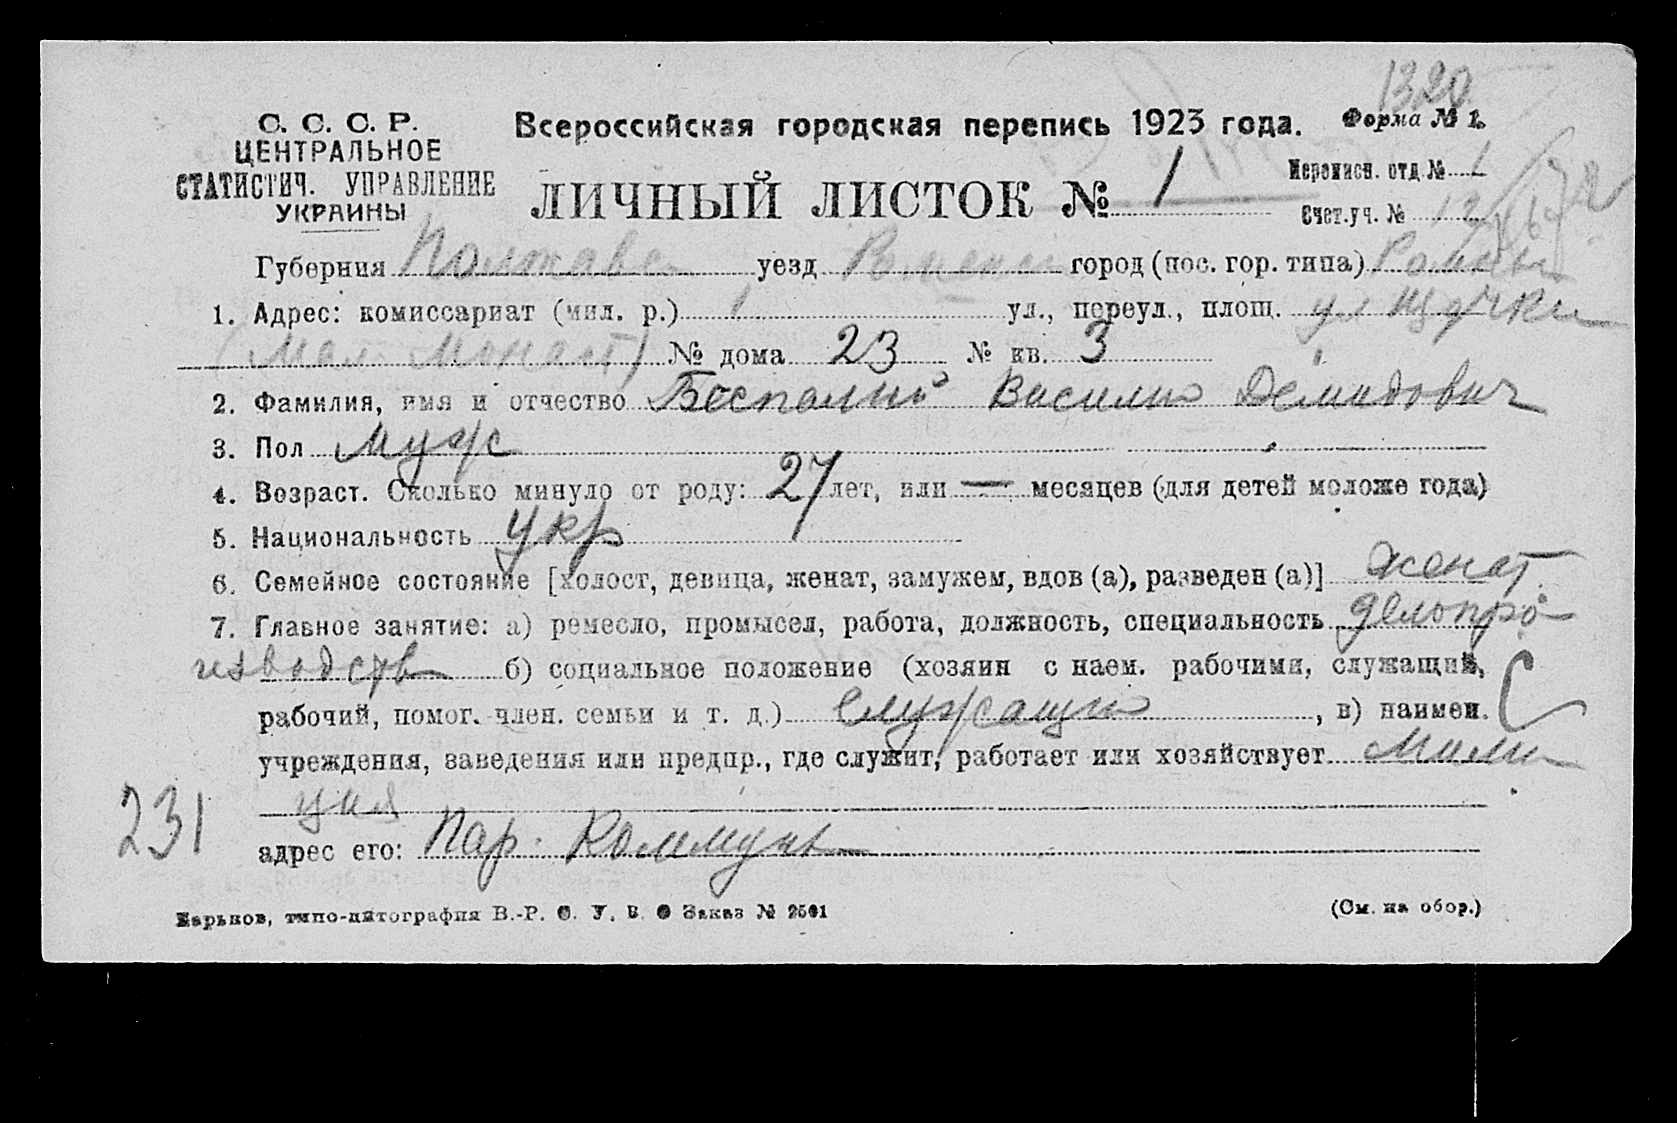 1320
С. С. С. Р.
ЦЕНТРАЛЬНОЕ
СТАТИСТИЧ. УПРАВЛЕНИЕ
УКРАИНЫ
Всероссийская городская перепись 1923 года. Форма № 1.
ЛИЧНЫЙ ЛИСТОК № 1
Переписн. отд. № 1
Счет. уч. № 12
Губерния Полтавск уезд Роменск город (пос. гор. типа) Ромны
1. Адрес: комиссариат (мил. р.) 1 ул., переул., площ. ул
(Мал. Монаст) № дома 23 № кв. 3
2. Фамилия, имя и отчество Беспалый Василий Демидович
3. Пол Муж
4. Возраст. Сколько минуло от роду: 27 лет, или — месяцев (для детей моложе года)
5. Национальность Укр
6. Семейное состояние [холост, девица, женат, замужем, вдов (а), разведен (а)] женат
7. Главное занятие: а) ремесло, промысел, работа, должность, специальность делопро
изводств б) социальное положение (хозяин с наем. рабочими, служащий,
рабочий, помог. член. семьи и т. д.) Служащий, в) наимен. С
учреждения, заведения или предпр., где служит, работает или хозяйствует Мили
ция
231
адрес его: Пар. Коммуны
Харьков, типо-литография В.-Р. С. У. В. О Заказ № 2501
(См. на обор.)